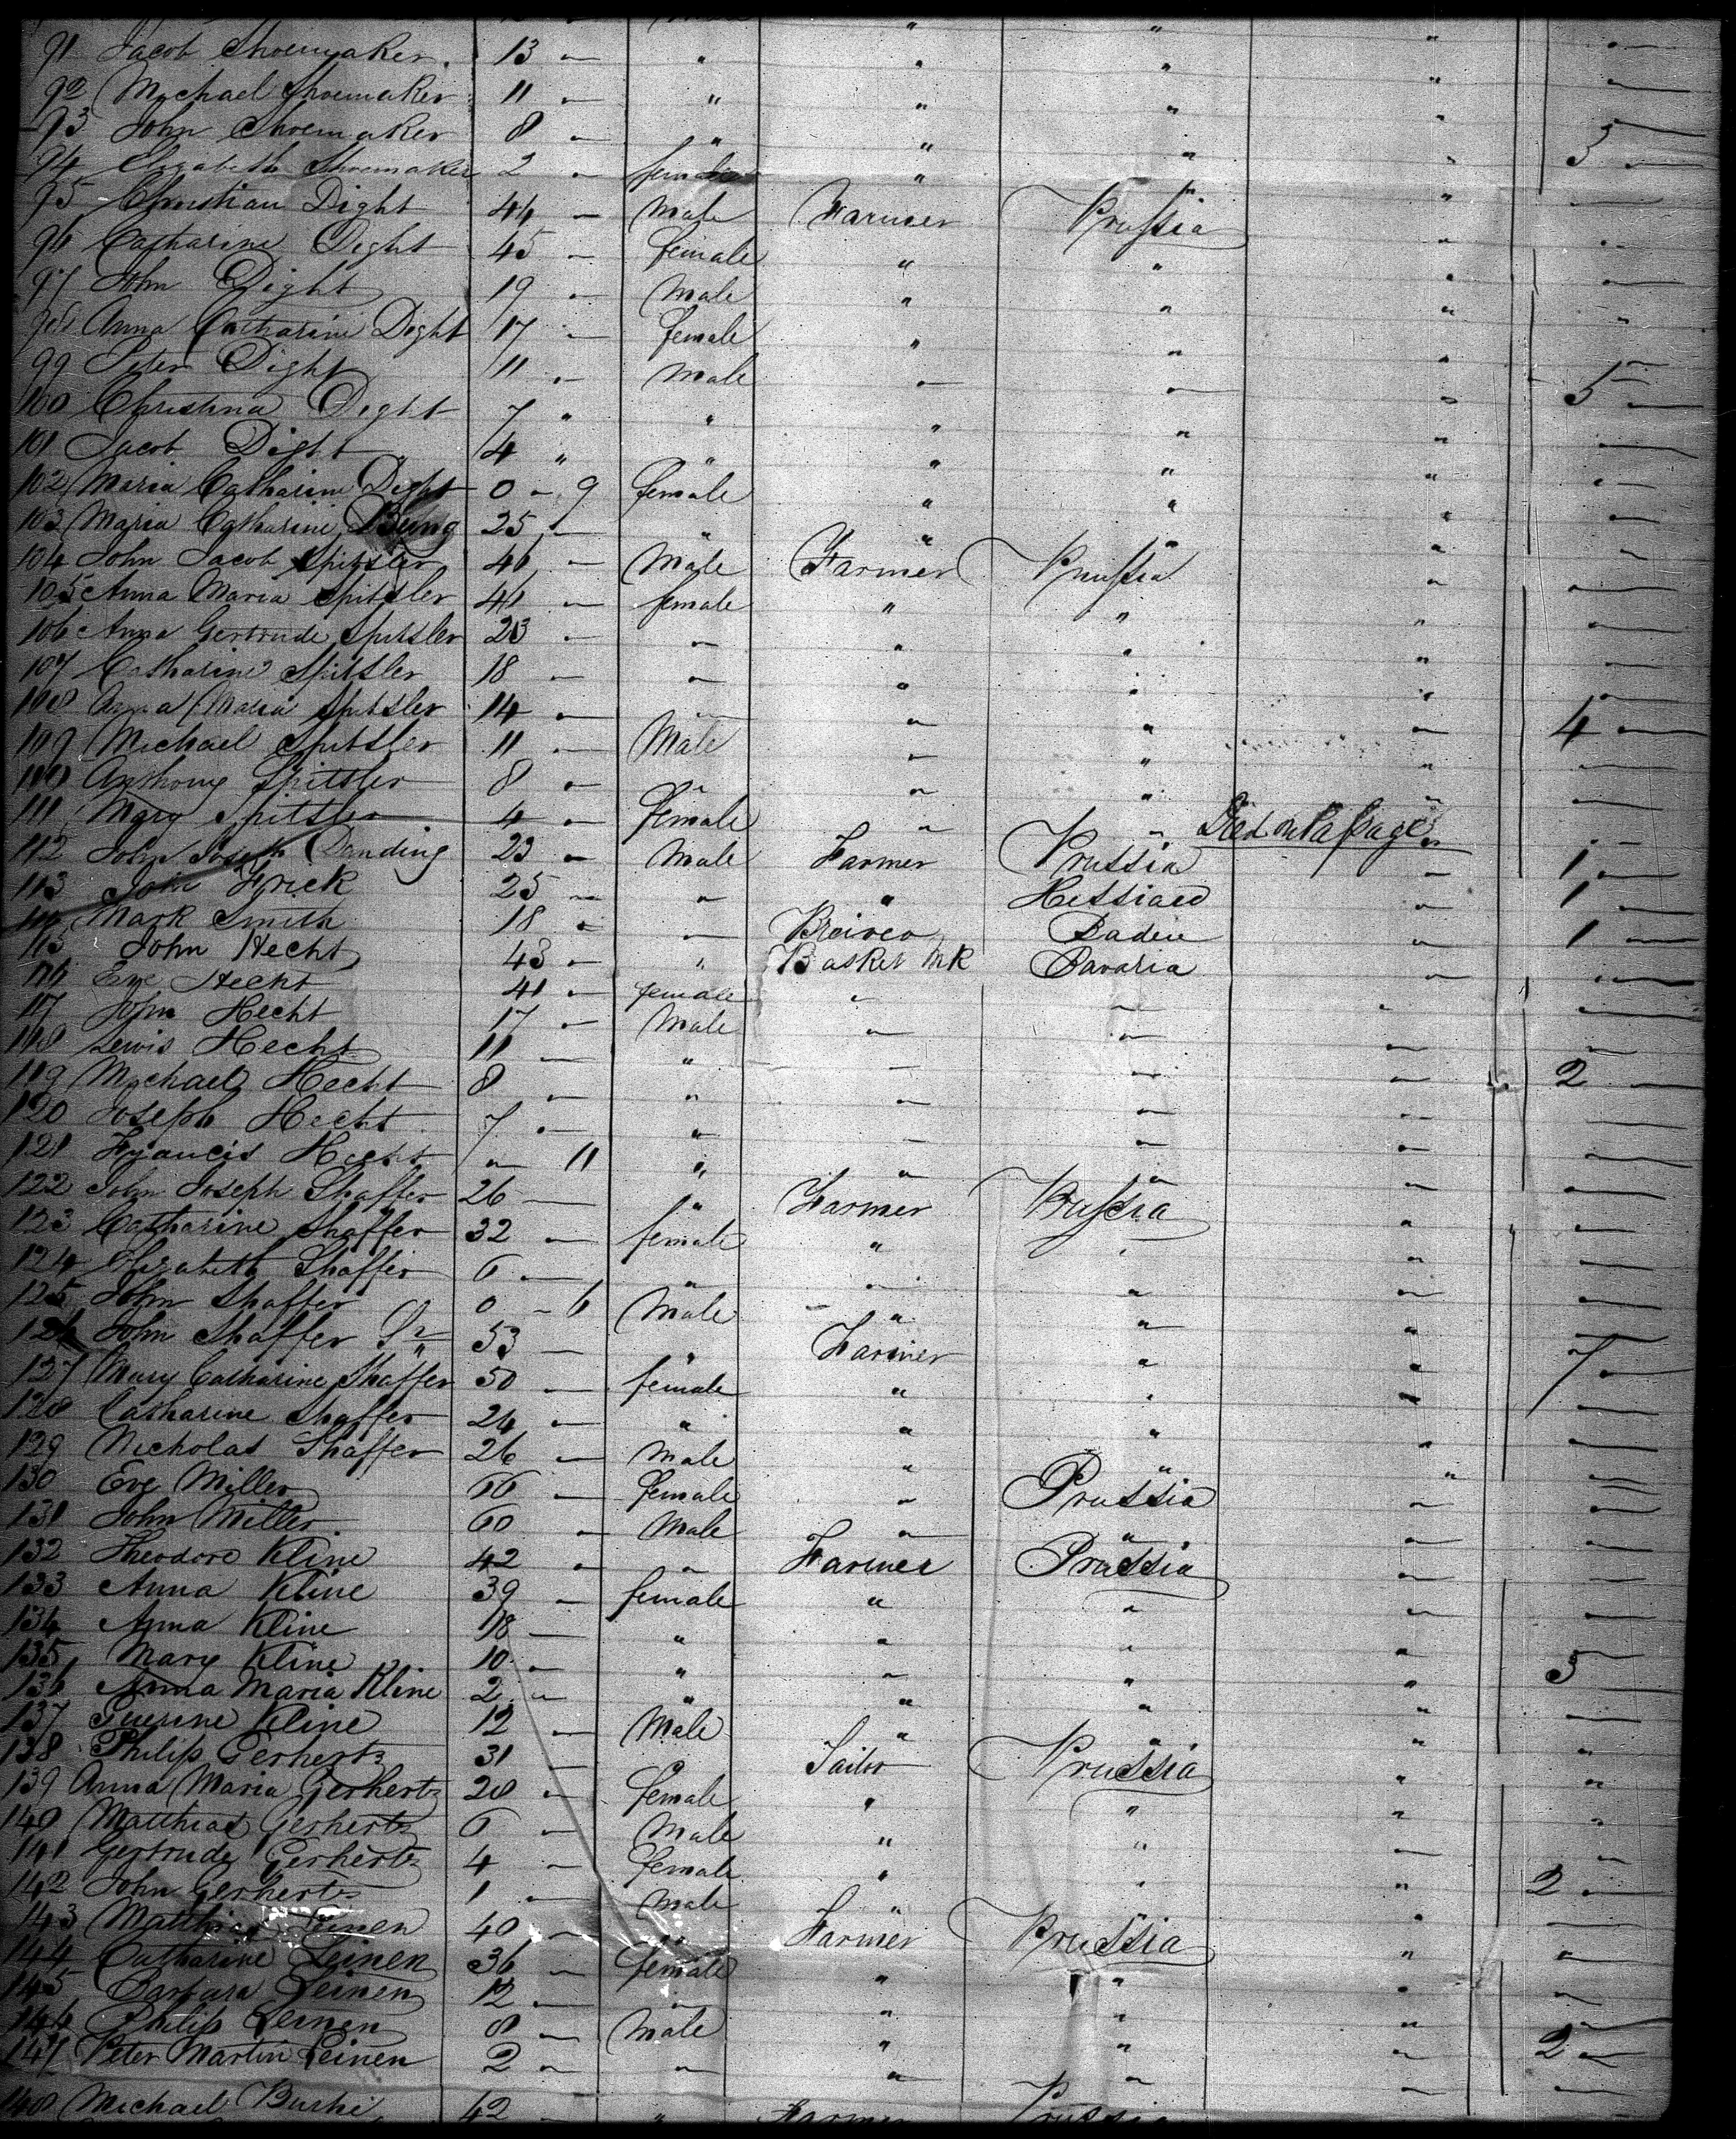 91 Jacob Shoemaker 13 — " " " "
92 Michael Shoemaker 11 — " " " "
93 John Shoemaker 8 — " " " " 5 —
94 Elizabeth Shoemaker 2 — female " " "
95 Christian Dight 44 — Male Farmer Prussia "
96 Catharine Dight 45 — female " " "
97 John Dight 19 — Male " " "
98 Anna Catharine Dight 17 — female " " "
99 Peter Dight 11 — Male " " " 5 —
100 Christina Dight 7 " " " " "
101 Jacob Dight 4 " " " " "
102 Maria Catharine Dight 0 — 9 female " " "
103 Maria Catharine 25 — " " " "
104 John Jacob Spitsler 46 — Male Farmer Prussia "
105 Anna Maria Spitsler 41 — female " " "
106 Anna Gertrude Spitsler — " " " "
107 Catharine Spitsler 18 — " " " "
108 Anna Maria Spitsler 14 — " " " " 4 —
109 Michael Spitsler 11 — Male " " "
110 Anthony Spitsler 8 — " " " "
111 Mary Spitsler 4 — female " " Died on Passage
112 John Joseph Danding 23 — Male Farmer Prussia " 1 —
113 John Frick 25 — " " " 1 —
114 Mark Smith 18 — " Baden " 1 —
115 John Hecht 43 — " Basket Mk Bavaria "
116 Eve Hecht 41 — female " " "
117 John Hecht 17 — Male " " "
118 Lewis Hecht 11 — " " " "
119 Michael Hecht 8 — " " " " 2 —
120 Joseph Hecht 7 — " " " "
121 Francis Hecht — 11 " " " "
122 John Joseph Shaffer 26 — " Farmer Prussia "
123 Catharine Shaffer 32 — female " " "
124 Elizabeth Shaffer 6 — " " " "
125 John Shaffer 0 — 6 Male " " "
126 John Shaffer Sr 53 — " Farmer " " 7 —
127 Mary Catharine Shaffer 50 — female " " "
128 Catharine Shaffer 24 — " " " "
129 Nicholas Shaffer 26 — Male " " "
130 Eve Miller 66 — female " Prussia "
131 John Miller 60 — Male " " "
132 Theodore Kline 42 — " Farmer Prussia "
133 Anna Kline 39 — female " " "
134 Anna Kline 18 — " " " "
135 Mary Kline 10 — " " " " 5 —
136 Anna Maria Kline 2 — " " " "
137 Kline 12 — Male " " "
138 Philip Gerhertz 31 — " Tailor Prussia "
139 Anna Maria Gerhertz 28 — female " " "
140 Matthias Gerhertz 6 — Male " " "
141 Gertrude Gerhertz 4 — female " " "
142 John Gerhertz 1 — Male " " " 2 —
143 Matthias Leinen 40 — " Farmer Prussia "
144 Catharine Leinen 36 — female " " "
145 Barbara Leinen 12 — " " " "
146 Philip Leinen 8 — Male " " "
147 Peter Martin Leinen 2 — " " " " 2 —
148 Michael 42 — " Farmer Prussia